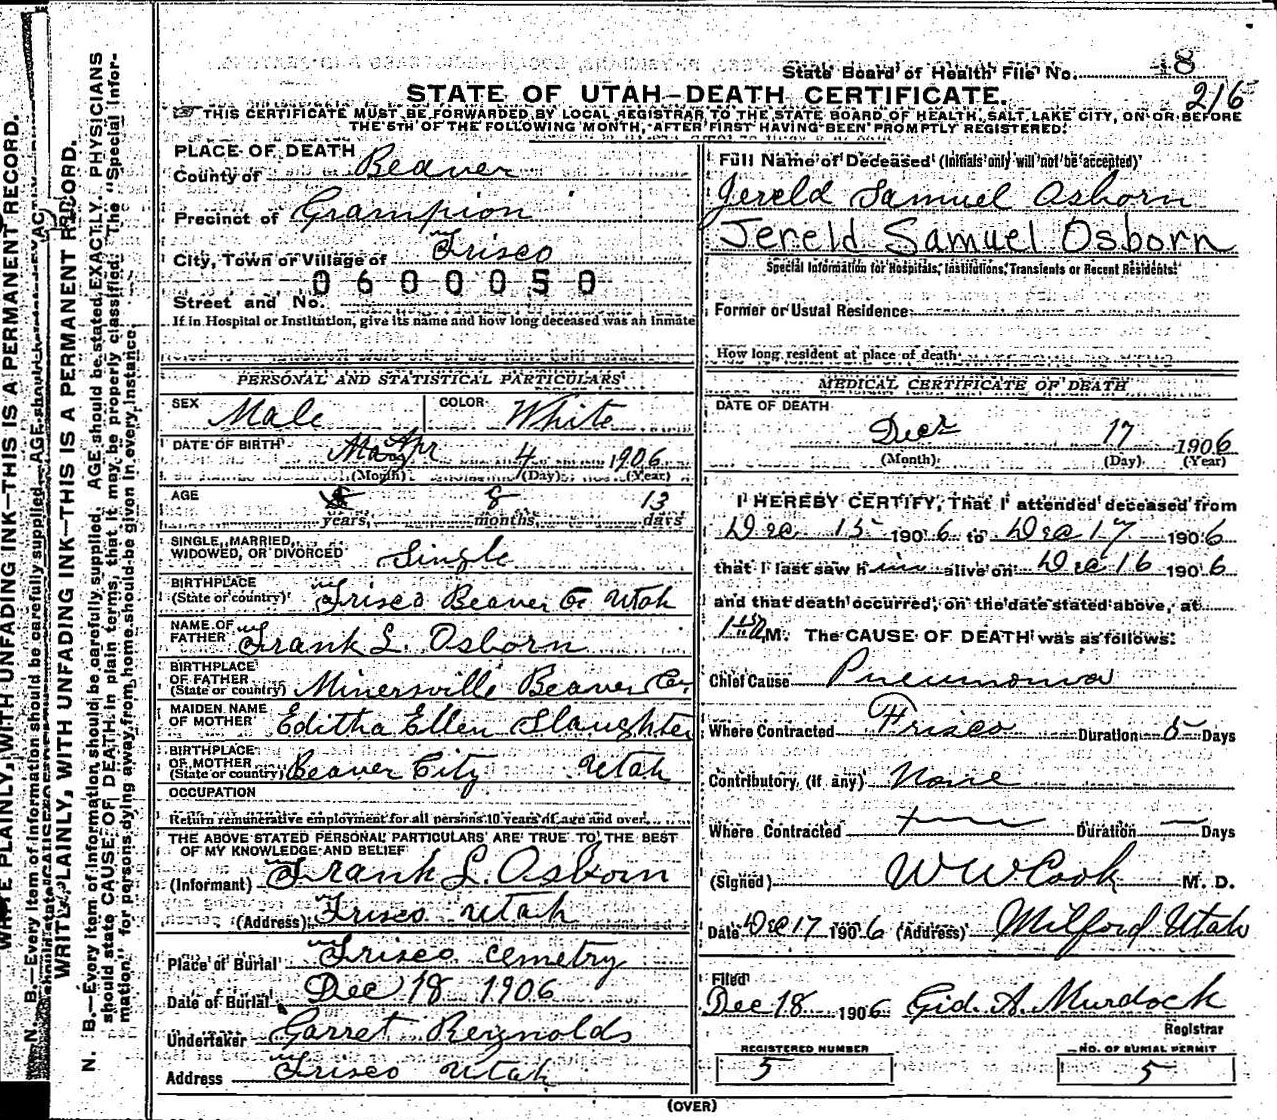 State Board of Health File No. 48
216
STATE OF UTAH—DEATH CERTIFICATE.
THIS CERTIFICATE MUST BE FORWARDED BY LOCAL REGISTRAR TO THE STATE BOARD OF HEALTH, SALT LAKE CITY, ON OR BEFORE
THE 5TH OF THE FOLLOWING MONTH, AFTER FIRST HAVING BEEN PROMPTLY REGISTERED.
PLACE OF DEATH
County of Beaver
Precinct of Grampion
City, Town or Village of Frisco
0600050
Street and No.
If in Hospital or Institution, give its name and how long deceased was an inmate
PERSONAL AND STATISTICAL PARTICULARS
SEX Male COLOR White
DATE OF BIRTH Apr 4 1906
(Month) (Day) (Year)
AGE 8 13
years, months, days
SINGLE, MARRIED,
WIDOWED, OR DIVORCED Single
BIRTHPLACE
(State or country) Frisco Beaver Co Utah
NAME OF
FATHER Frank L. Osborn
BIRTHPLACE
OF FATHER
(State or country) Minersville Beaver Co.
MAIDEN NAME
OF MOTHER Editha Ellen Slaughter
BIRTHPLACE
OF MOTHER
(State or country) Beaver City Utah
OCCUPATION
Return remunerative employment for all persons 10 years of age and over
THE ABOVE STATED PERSONAL PARTICULARS ARE TRUE TO THE BEST
OF MY KNOWLEDGE AND BELIEF
(Informant) Frank L. Osborn
(Address) Frisco Utah
Place of Burial Frisco Cemetry
Date of Burial Dec 18 1906
Undertaker Garret Reynolds
Address Frisco Utah
Full Name of Deceased (Initials only will not be accepted)
Jereld Samuel Osborn
Jereld Samuel Osborn
Special Information for Hospitals, Institutions, Transients or Recent Residents:
Former or Usual Residence
How long resident at place of death
MEDICAL CERTIFICATE OF DEATH
DATE OF DEATH
Dec 17 1906
(Month) (Day) (Year)
I HEREBY CERTIFY, That I attended deceased from
Dec 15 1906 to Dec 17 1906
that I last saw him alive on Dec 16 1906
and that death occurred, on the date stated above, at
M. The CAUSE OF DEATH was as follows:
Chief Cause Pneumonia
Where Contracted Frisco Duration 5 Days
Contributory (if any) None
Where Contracted Duration — Days
(Signed) W W Cook M. D.
Date Dec 17 1906 (Address) Milford Utah
Filed
Dec 18 1906 Gid. A. Murdock
Registrar
REGISTERED NUMBER
5
NO. OF BURIAL PERMIT
5
(OVER)
WRITE PLAINLY, WITH UNFADING INK—THIS IS A PERMANENT RECORD.
N. B.—Every item of information should be carefully supplied. AGE should
WRITE PLAINLY, WITH UNFADING INK—THIS IS A PERMANENT RECORD.
N. B.—Every item of information should be carefully supplied. AGE should be stated EXACTLY. PHYSICIANS
should state CAUSE OF DEATH in plain terms, that it may be properly classified. The "Special Infor-
mation" for persons dying away from home should be given in every instance.